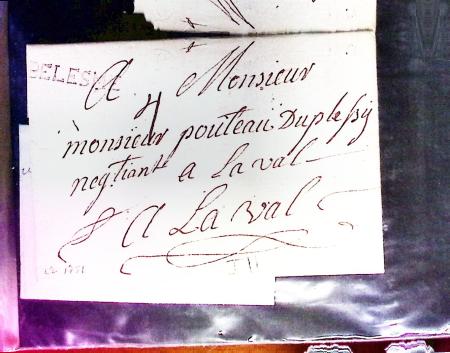 A Monsieur
monsieur pouteau Duplessy
negtiant a Laval
A Laval